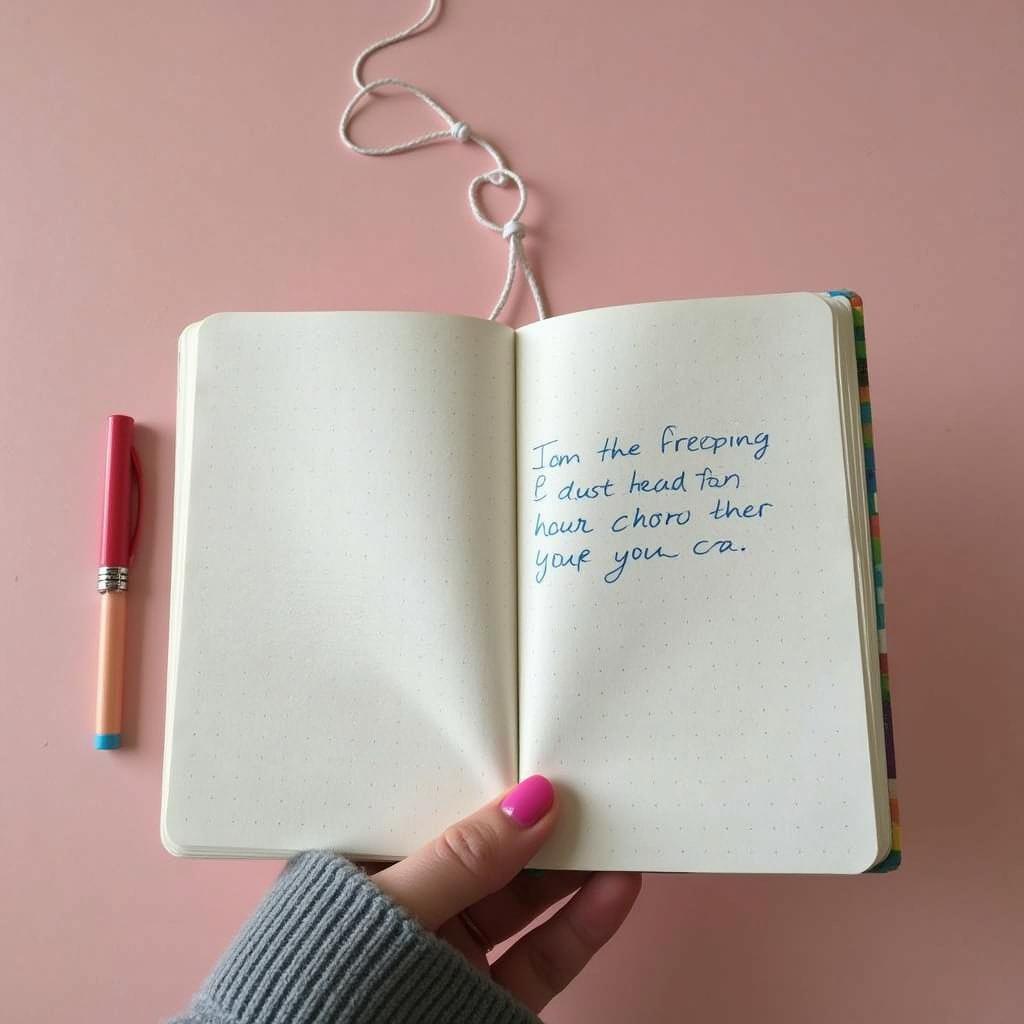 Iom the Freeping
E dust head fan
hour choro ther
youe you ca.